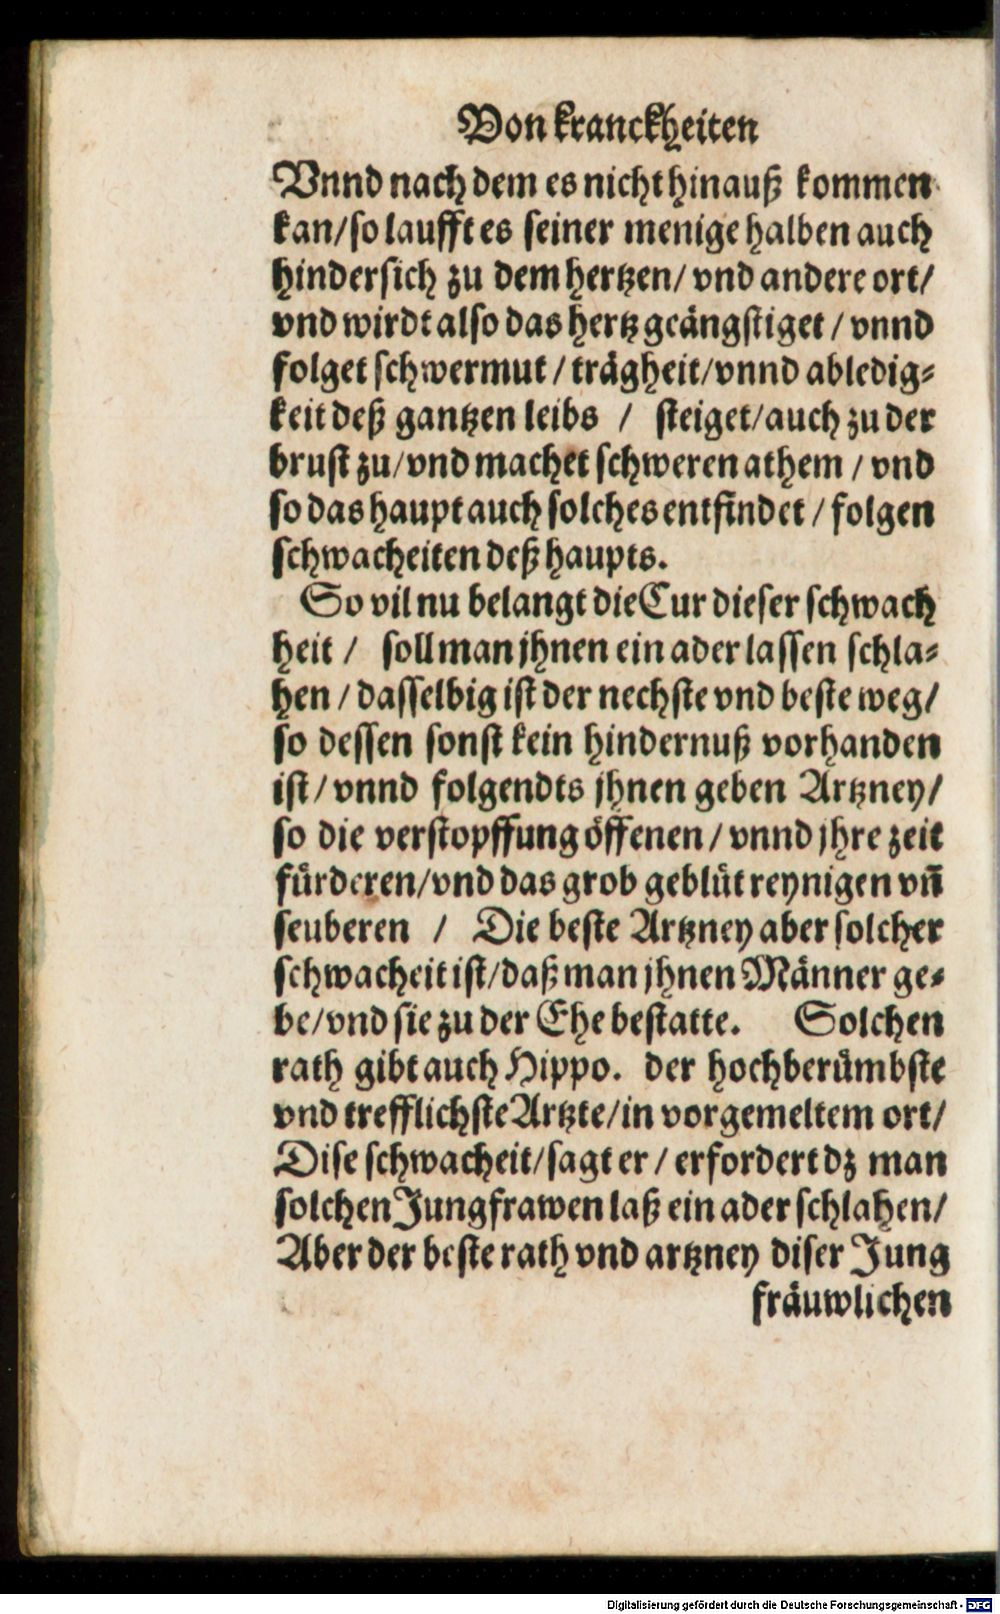 Von kranckheiten
Vnnd nach dem es nicht hinauß kommen
kan/so laufft es seiner menige halben auch
hindersich zu dem hertzen/ vnd andere ort/
vnd wirdt also das hertz geängstiget / vnnd
folget schwermut / trägheit/vnnd abledig⸗
keit deß gantzen leibs / steiget/auch zu der
brust zu/vnd machet schweren athem / vnd
so das haupt auch solches entfindet / folgen
schwacheiten deß haupts.
So vil nu belangt die Cur dieser schwach
heit / soll man jhnen ein ader lassen schla⸗
hen / dasselbig ist der nechste vnd beste weg/
so dessen sonst kein hindernuß vorhanden
ist/ vnnd folgendts jhnen geben Artzney/
so die verstopffung öffenen / vnnd jhre zeit
fürderen/vnd das grob geblüt reynigen vñ
seuberen / Die beste Artzney aber solcher
schwacheit ist/daß man jhnen Männer ge⸗
be/vnd sie zu der Ehe bestatte. Solchen
rath gibt auch Hippo. der hochberümbste
vnd trefflichste Artzte/in vorgemeltem ort/
Dise schwacheit/sagt er / erfordert dz man
solchen Jungfrawen laß ein ader schlahen/
Aber der beste rath vnd artzney diser Jung
fräuwlichen
Digitalisierung gefördert durch die Deutsche Forschungsgemeinschaft - DFG